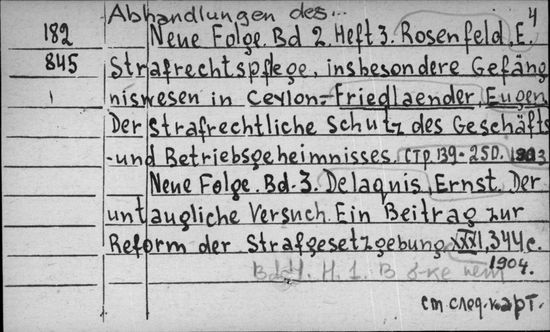 4
Abhandlungen des...
182 Neue Folge. Bd 2. Heft 3. Rosenfeld, E.
845 Strafrechtspflege, insbesondere Gefäng
niswesen in Ceylon-Friedlaender, Eugen
Der strafrechtliche Schutz des Geschäfts
-und Betriebsgeheimnisses. стр 139-250. 1903
Neue Folge. Bd. 3. Delaquis, Ernst. Der
untaugliche Versuch. Ein Beitrag zur
Reform der Strafgesetzgebung XXXI, 344 с.
1904.
Bd 4. H. 1. В б-ке нет
см след. карт.